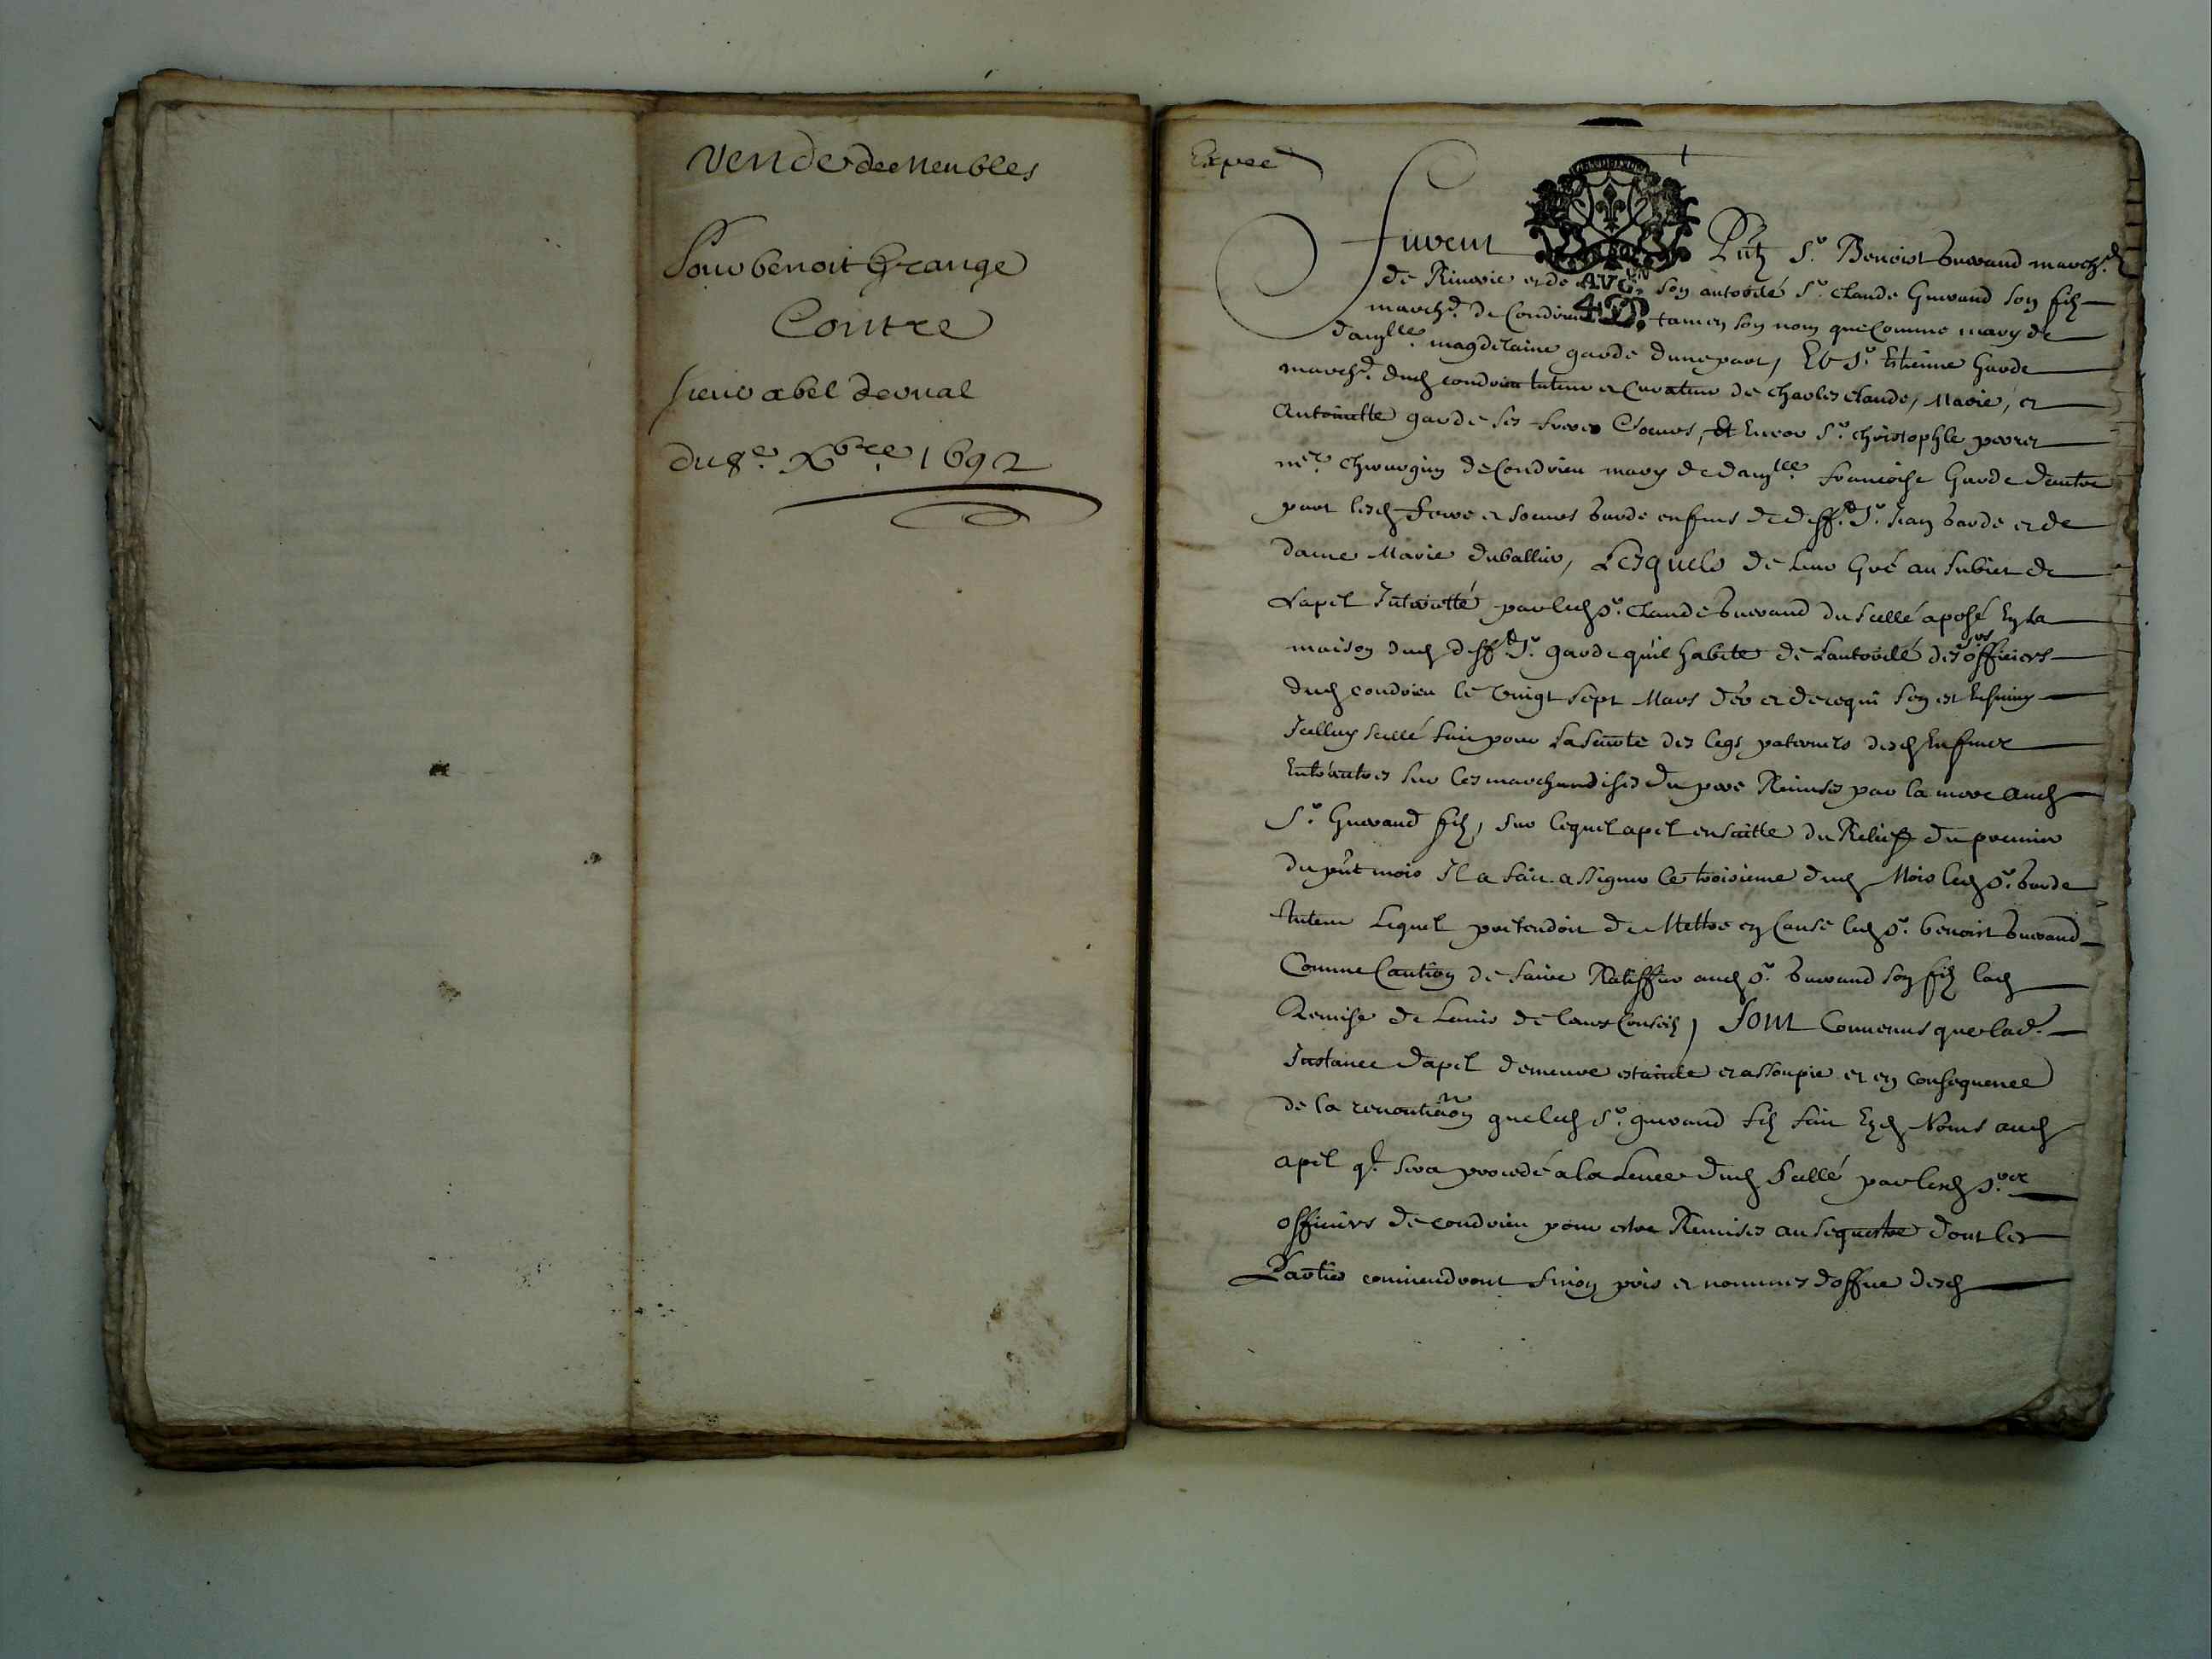 Vende de Meubles
Pour benoit Grange
Contre
sieur abel Deorial
du 8e. Xbre 1692
Expee
furent Pntz Sr. Benoist Guerand march.d
de Riverie et de son autorité Sr. Claude Guerand son filz
march.d de Condrieu tam en son nom que Comme mary de
damlle. magdelaine garde dune part, Et Sr. Estienne Garde
march.d dud condrieu tuteur et Curateur de Charles Claude, Marie, et
Antoinette garde ses freres & soeurs, Et Encor Sr. Christophle
me. Chirurgien de Condrieu mary de damlle. francoise Garde dautre
part lesd frere et soeurs garde enfans de deff.d Sr. Jean garde et de
dame Marie duballier, Lesquels de leur Gré au subiet de
Lapel Interietté par led Sr. Claude Guerand du scellé aposé En la
maison dud deff.d Sr. garde quil habite de Lautorité des srs officiers
dud condrieu le vingt sept Mars der et de ce qui sen est Ensuivy
Icelluy scellé fait pour la seureté des legs paternels desd Enfans
Entrautres sur les marchandises du pere Remises par la mere aud
Sr. Guerand filz, sur lequel apel ensuitte du Relief du premier
du pnt mois Il a fait assigner le troisieme dud Mois led Sr. garde
tuteur Lequel pretendoit de Mettre en Cause led Sr. benoist Guerand
Comme Caution de faire Ratiffier aud Sr. Guerand son filz lad
Remise de Lavis de leurs Conseilz, Sont Convenus que lad.
Instance dapel demeure estainte et assoupie et en consequence
de la renontiaon que led Sr. guerand filz fait Esd Noms aud
apel ql. sera procedé a la Levee dud Scellé par lesd Srs
officiers de condrieu pour estre Remises au sequestre dont les
Parties conviendront sinon pris et nommes doffice desd